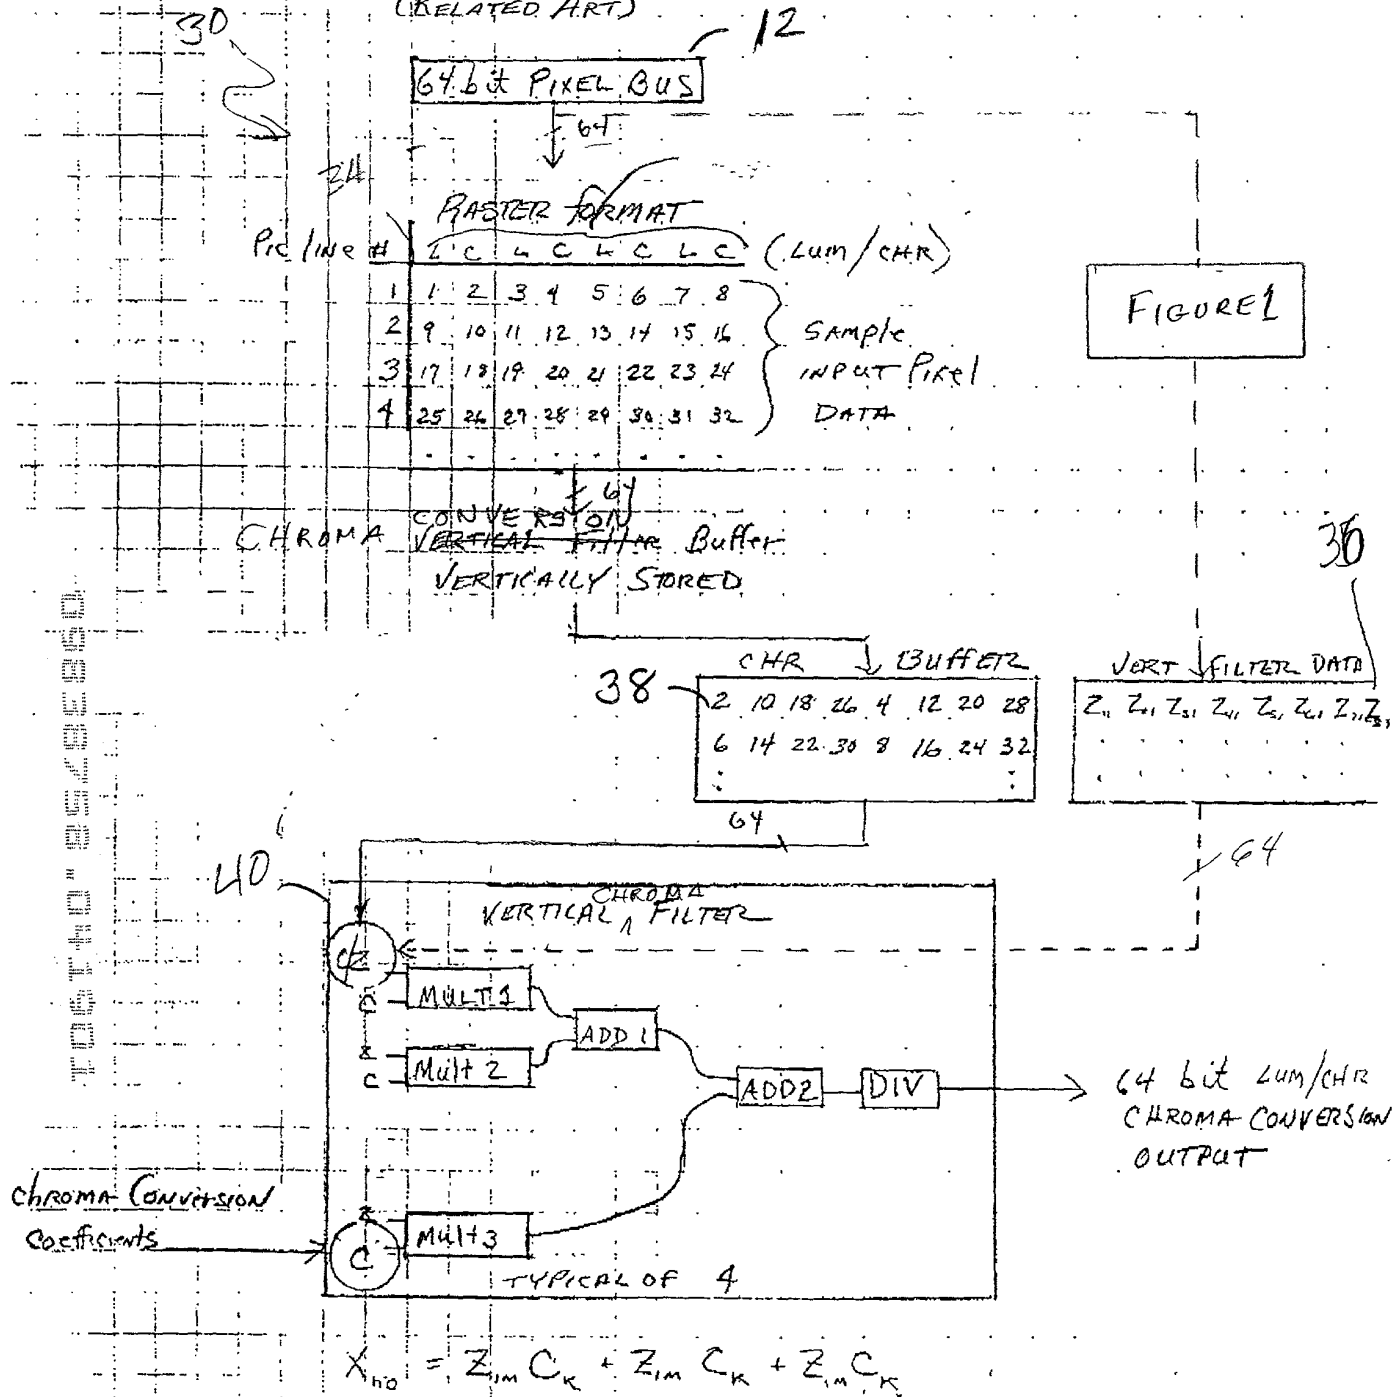 (RELATED ART)
30
12
64 bit PIXEL BUS
64
34
RASTER FORMAT
Pic line # L C L C L C L C (LUM/CHR)
1 1 2 3 4 5 6 7 8
2 9 10 11 12 13 14 15 16
3 17 18 19 20 21 22 23 24
4 25 26 27 28 29 30 31 32
SAMPLE
INPUT Pixel
DATA
FIGURE 1
64
CONVERSION
CHROMA VERTICAL Filter Buffer
VERTICALLY STORED
36
CHR BUFFER
38
2 10 18 26 4 12 20 28
6 14 22 30 8 16 24 32
VERT FILTER DATA
64
64
40
CHROMA
VERTICAL ^ FILTER
MULT 1
C
ADD 1
Mult 2
C
ADD2
DIV
64 bit LUM/CHR
CHROMA CONVERSION
OUTPUT
CHROMA CONVERSION
Coefficients
C
Mult 3
TYPICAL OF 4
X = Z C + Z C + Z C